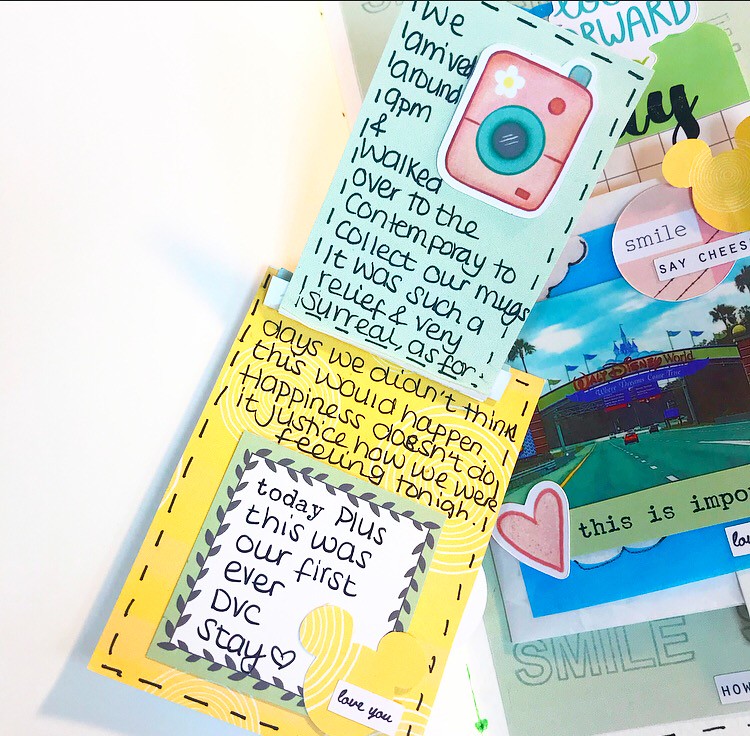 We
arrived
around
9pm
&
walked
over to the
Contemporay to
collect our mugs
It was such a
relief & very
surreal, as for
days we didn't think
this would happen.
Happiness doesn't do
it justice how we were
feeling tonigh.
today Plus
this was
our first
ever
DVC
stay
love you
FORWARD
smile
SAY CHEES
WALT DISNEY World
Where Dreams Come True
this is impor
lov
SMILE
HOW